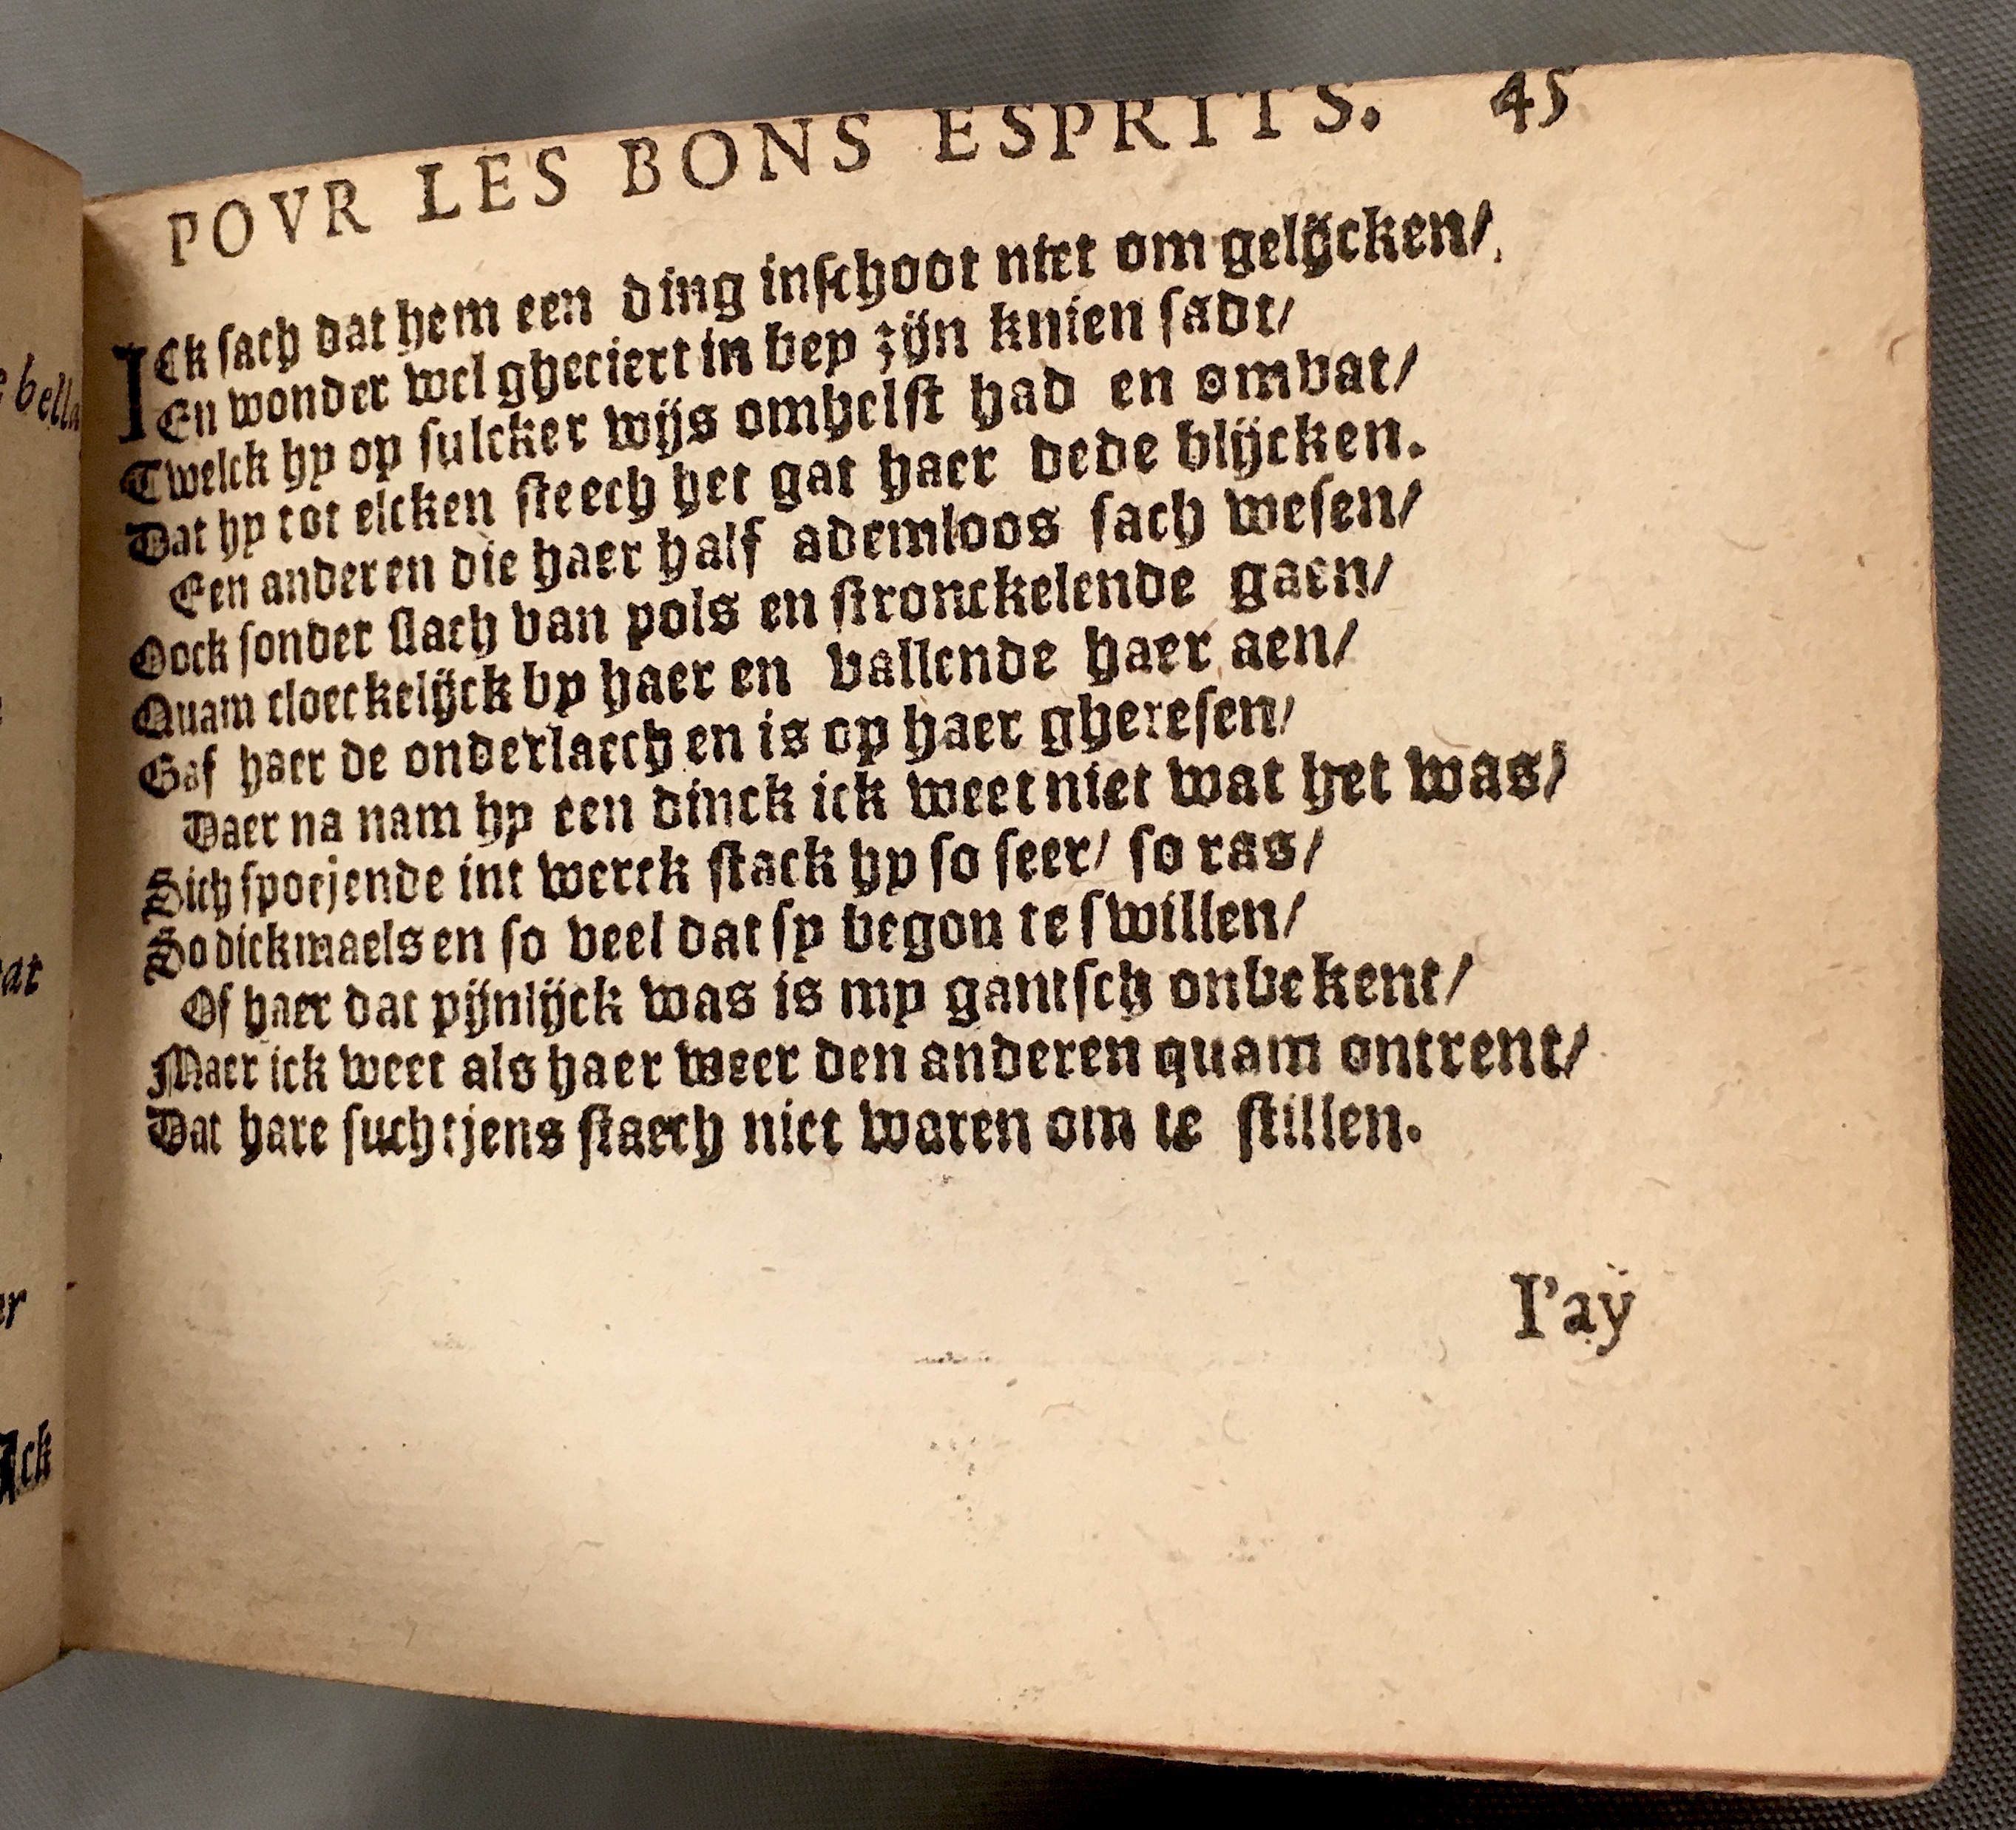 POVR LES BONS ESPRITS. 45
ICk sach dat hem een ding inschoot niet om gelijcken/
En wonder wel gheciert in bey zijn knien sadt/
Twelck hy op sulcker wijs omhelst had en omvat/
Dat hy tot elcken steech het gat haer dede blijcken.
Een anderen die haer half ademloos sach wesen/
Oock sonder slach van pols en stronckelende gaen/
Quam cloeckelijck by haer en vallende haer aen/
Gaf haer de onderlaech en is op haer gheresen/
Daer na nam hy een dinck ick weet niet wat het was/
Sich spoejende int werck stack hy so seer/ so ras/
So dickmaels en so veel dat sy begon te swillen/
Of haer dat pijnlijck was is my gantsch onbekent/
Maer ick weet als haer weer den anderen quam ontrent/
Dat hare suchtjens staech niet waren om te stillen.
I'ay
bella
at
er
Ack